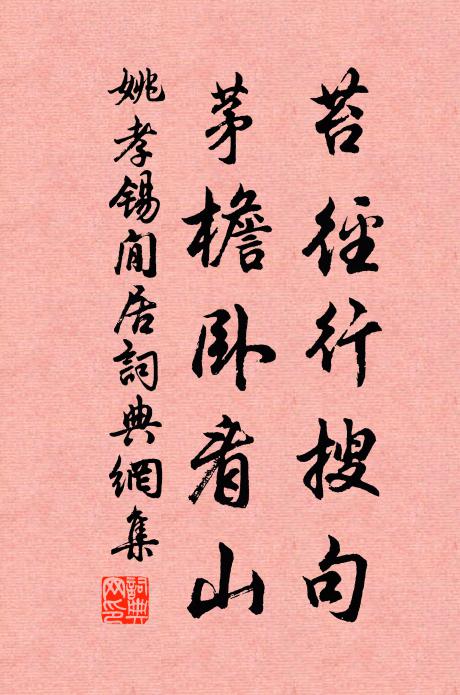 苔徑行搜句
茅檐卧看山
姚孝錫閒居詞典網集
詞典網印